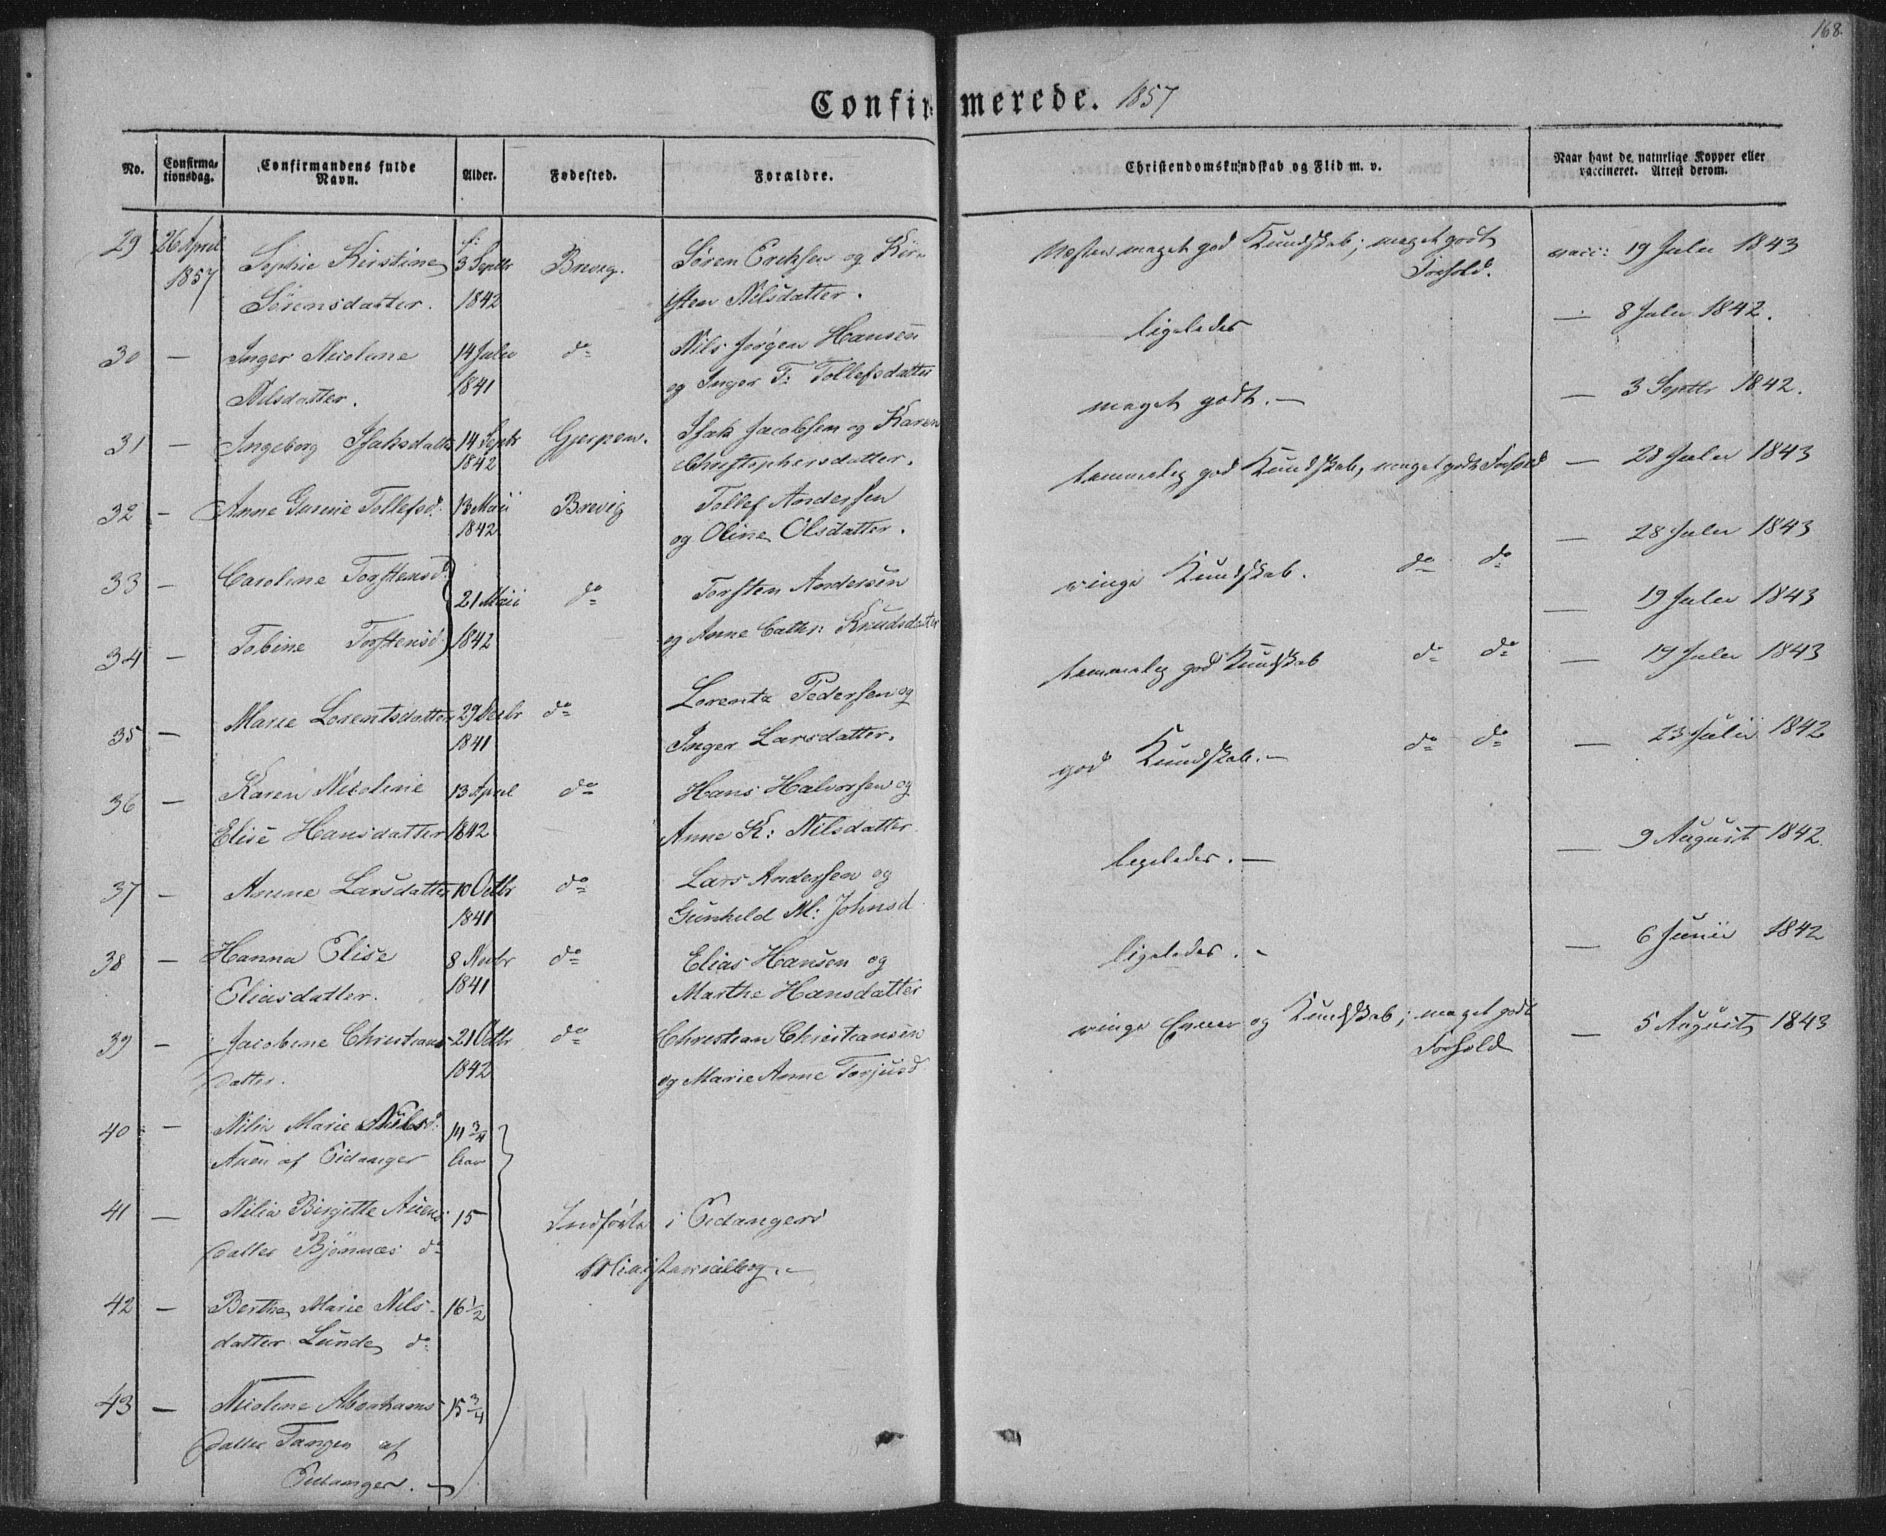 168.
Confirmerede. 1857
No.
Confirma-
tionsdag.
Confirmandens fulde
Navn.
Alder.
Fødested.
Forældre.
Christendomskundskab og Flid m. v.
Naar havt de naturlige Kopper eller
vaccineret. Attest derom.
29 26 April Sophie Kirstine f: 3 Septbr Brevig. Søren Erichsen og Kir- Næsten meget god Kundskab; meget godt vacc: 19 Julii 1843
1857 Sørensdatter. 1842 isten Nilsdatter. Forhold.
30 — Inger Nicoline 14 Julii do Nils Jørgen Hansen ligeledes — 8 Julii 1842.
Nilsdatter. 1841 og Inger T: Tollefsdatter
31 — Ingeborg Isaksdatter 14 Septbr Gjerpen. Isak Jacobsen og Karen meget godt. — — 3 Septbr 1842.
1842 Christophersdatter.
32 — Anne Gurine Tollefsd: 13 Maii Brevig Tollef Andersen temmelig god Kundskab, meget godt Forhold — 28 Julii 1843
1842 og Oline Olsdatter.
33 — Caroline Torstensd: 21 Maii do Torsten Andersen ringe Kundskab. do do — 28 Julii 1843
— 19 Julii 1843
34 — Tobine Torstensd: 1842 og Anne Cathr: Knudsdatter temmelig god Kundskab do do — 19 Julii 1843
35 — Marie Lorentsdatter 29 Decbr do Lorentz Pedersen og god Kundskab. — do do — 23 Julii 1842
1841 Inger Larsdatter.
36 — Karen Nicoline 13 April do Hans Halvorsen og ligeledes. — — 9 August 1842.
Elise Hansdatter 1842. Anne K: Nilsdatter
37 — Anne Larsdatter 10 Octbr do Lars Andersen og ligeledes. — — 6 Junii 1842
1841 Gunhild M: Johnsd
38 — Hanna Elise 8 Novbr do Elias Hansen og
Eliasdatter. 1841 Marthe Hansdatter
ringe Evner og Kundskab; meget godt — 5 August 1843
Forhold
39 — Jacobine Christians- 21 Octbr do Christian Christiansen
datter. 1842 og Marie Anne Torjusd
40 — Nilia Marie Nilsd: 14 3/4
Auen af Eidanger Aar
41 — Nilia Birgitte Auens- 15 Indførte i Eidangers
datter Bjønnæs do Ministerialbog. —
42 — Berthe Marie Nils- 16 1/2
datter Lunde do
43 — Nicoline Abrahams- 15 3/4
datter Tangen af
Eidanger. —